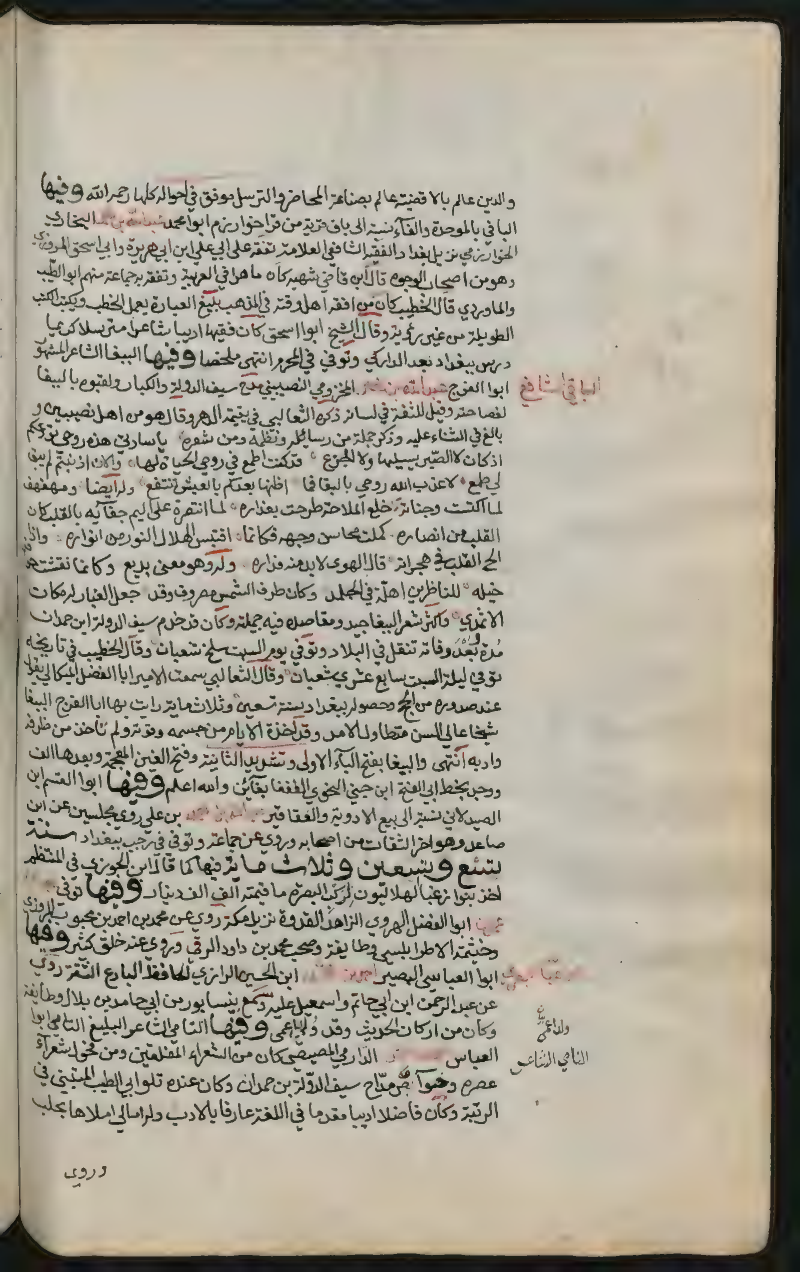 والدين عالم بالاقضية عالم بصناعة المحاضر والترسل موفق في احواله كلها رحمه الله وفيها
البافي بالموحدة والفاء نسبة الى باف قرية من قرا خوارزم ابوا محمد عبد الله بن محمد البخاري
الخوارزمي نزيل بغداد الفقيه الشافعي العلامة تفقه على ابي علي ابن ابي هريرة وابي اسحق المروزي
وهو من اصحاب الوجوه قال ابن قاضي شهبه كان ماهرا في العربية وتفقه به جماعة منهم ابو الطيب
والماوردي قال الخطيب كان من افقه اهل وقته في المذهب بليغ العبارة يعمل الخطب ويكتب الكتب
الطويلة من غير روية وقال الشيخ ابوا اسحق كان فقيها اديبا شاعرا مترسلا كريما
درس ببغداد بعد الداركي وتوفي في المحرم انتهى ملخصا وفيها الببغا الشاعر المشهور
ابوا الفرج عبد الواحد بن نصر المخزومي النصيبي مدح سيف الدولة والكبار ولقبوه بالببغا
البافي الشافعي
لفصاحته وقيل للثغة في لسانه ذكره الثعالبي في يتيمة الدهر وقال هو من اهل نصيبين و
بالغ في الثناء عليه وذكر جملة من رسائله ونظمه ومن شعره يا سادتي هذه روحي تودعكم
اذ كان لا الصبر يسليها ولا الجزع قد كنت اطمع في روح الحياة لها والان اذ بنتم لم يبق
لي طمع لا عذب الله روحي بالبقا فما اظنها بعدكم بالعيش تنتفع وله ايضا ومهفهف
لما اكتست وجناته خلع الملاحة طرزت بعذاره لما انتصرت على اليم جفائه بالقلب كان
القلب من انصاره كملت محاسن وجهه فكانما اقتبس الهلال النور من انواره واذا
الح القلب في هجرانه قال الهوى لا بد منه فداره وله وهو معنى بديع وكانما نقشت
خيله للناظرين اهلة في الجلمد وكان طرف الشمس مطروف وقد جعل الغبار له مكان
الاثمد واكثر شعر الببغا جيد ومقاصده فيه جميلة وكان قد خدم سيف الدولة ابن حمدان
مدة وبعد وفاته تنقل في البلاد وتوفي يوم السبت سلخ شعبان وقال الخطيب في تاريخه
توفي ليلة السبت سابع عشري شعبان وقال الثعالبي سمعت الامير ابا الفضل الميكالي يقول
عند صدوره من الحج وحصوله ببغداد سنة تسعين وثلاث ماية رايت بها ابا الفرج الببغا
شيخا عالي السن متطاول الامد وقد اخذت الايام من جسمه وقوته ولم تاخذ من ظرفه
وادبه انتهى والببغا بفتح الباء الاولى وتشديد الثانية وفتح الغين المعجمة وبعدها الف
ووجد بخط ابي الفتح ابن جني النحوي الففغا بفائين والله اعلم وفيها ابوا القسم ابن
الصيدلاني نسبة الى بيع الادوية والعقاقير بن علي روى مجلسين عن ابن
صاعد وهو اخر الثقات من اصحابه وروى عن جماعة وتوفي في رجب ببغداد سنة
تسع وتسعين وثلاث ماية فيها كما قال ابن الجوزي في المنتظم
اخذ بنوا زغب الهلاليون لركب البصرة ما قيمته الف الف دينار وفيها توفي
ابوا الفضل الهروي الزاهد القدوة نزيل مكة روى عن محمد بن احمد بن محبوب المروزي
وخيثمة الاطرابلسي وطايفة وصحب محمد بن داود الرقي وروى عنه خلق كثير وفيها
ابوا العباسي البصير احمد بن ابن الحسين الرازي الحافظ البارع الثقة روى
عن عبد الرحمن ابن ابي حاتم واسمعيل عليه وسمع بنيسابور من ابي حامد بن بلال وطايفة
وكان من اركان الحديث وقد ولد اعمى وفيها النامي الشاعر البليغ النامي ابوا
ولد اعمى
العباس الدارمي المصيصي كان من الشعراء المفلقين ومن فحول شعراء
النامي الشاعر
عصره وخواص مداح سيف الدولة بن حمدان وكان عنده تلو ابي الطيب المتنبي في
الرتبة وكان فاضلا اديبا مقدما في اللغة عارفا بالادب وله امالي املاها بحلب
وروى